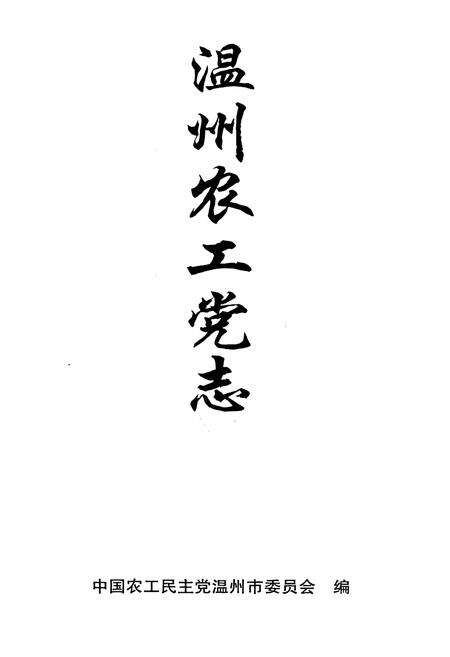 温州农工党志
中国农工民主党温州市委员会 编